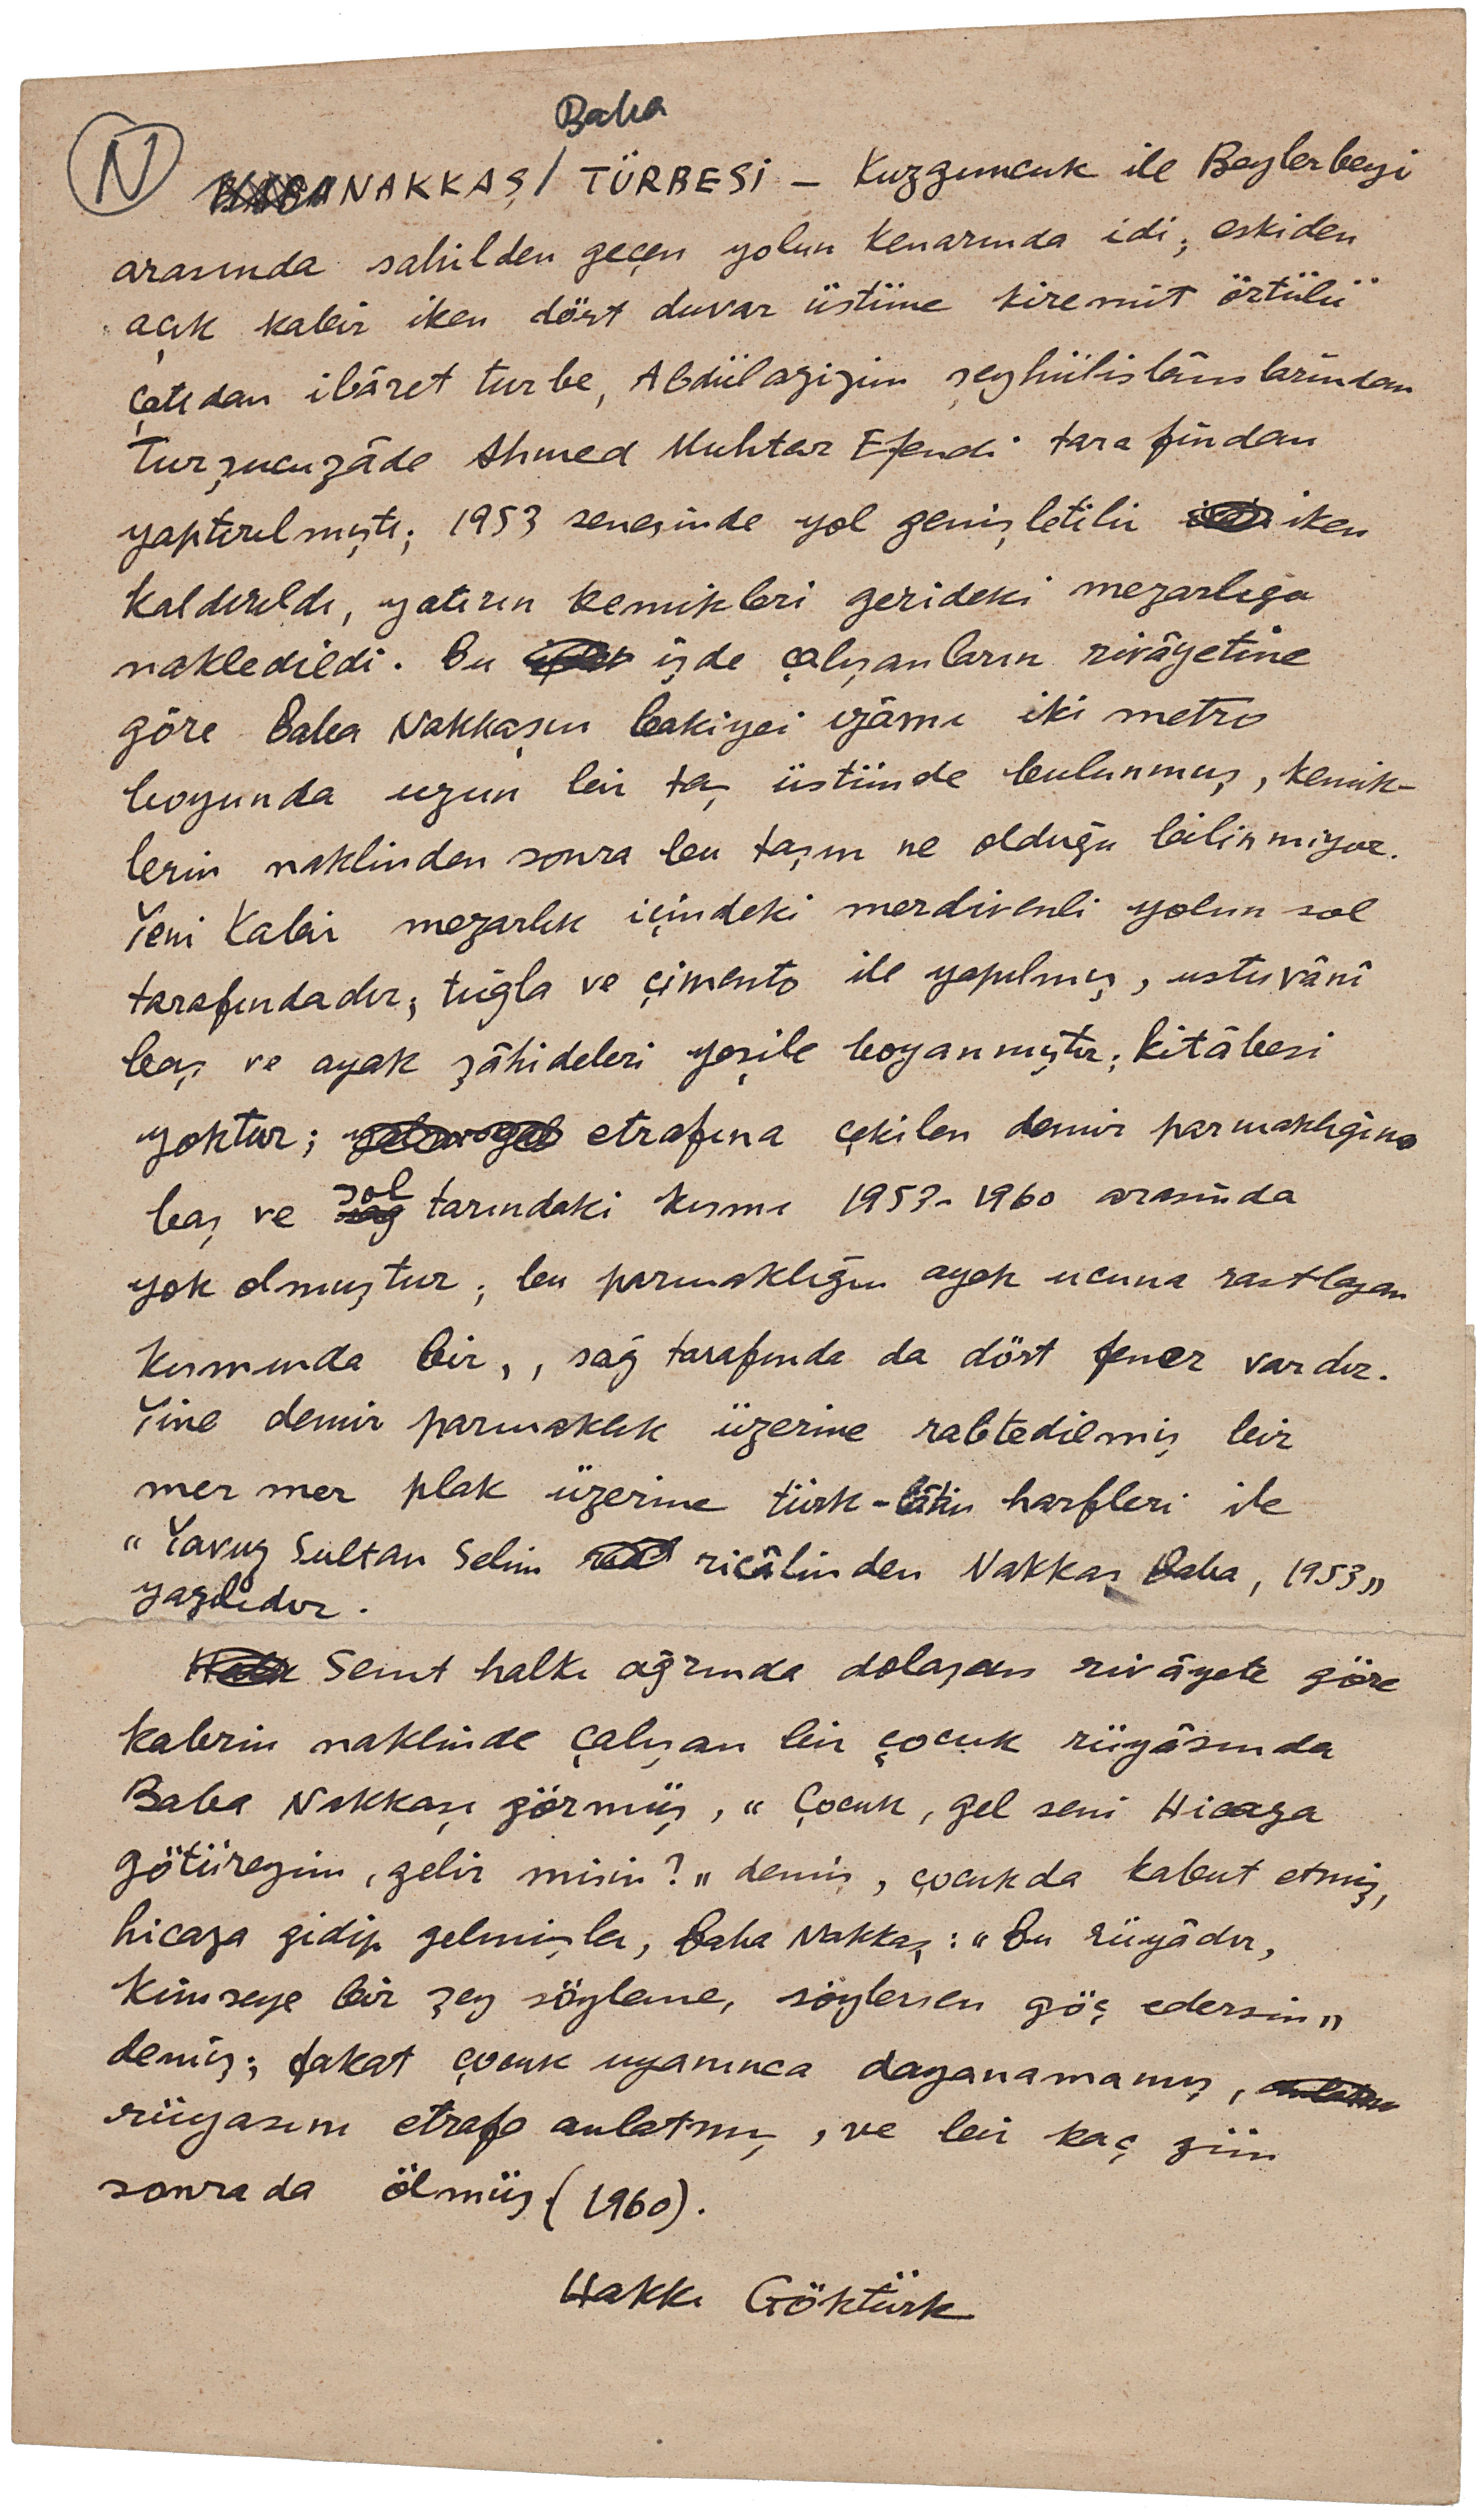 Baba
N NAKKAŞ / TÜRBESİ – Kuzguncuk ile Beylerbeyi
arasında sahilden geçen yolun kenarında idi; eskiden
açık kabir iken dört duvar üstüne kiremit örtülü
çatıdan ibâret türbe, Abdülazizin şeyhülislâmlarından
Turşucuzâde Ahmed Muhtar Efendi tarafından
yaptırılmıştı; 1953 senesinde yol genişletilir iken
kaldırıldı, yatırın kemikleri gerideki mezarlığa
nakledildi. Bu işde çalışanların rivâyetine
göre Baba Nakkaşın bakiyei izâmı iki metro
boyunda uzun bir taş üstünde bulunmuş, kemik-
lerin naklinden sonra bu taşın ne olduğu bilinmiyor.
Yeni Kabir mezarlık içindeki merdivenli yolun sol
tarafındadır; tuğla ve çimento ile yapılmış, ustuvânî
baş ve ayak şâhideleri yeşile boyanmıştır; kitâbesi
yoktur; etrafına çekilen demir parmaklığına
baş ve sol tarındaki kısmı 1953-1960 arasında
yok olmuştur; bu parmaklığın ayak ucuna rastlayan
kısmında bir, , sağ tarafında da dört fener vardır.
Yine demir parmaklık üzerine rabtedilmiş bir
mermer plak üzerine türk-lâtin harfleri ile
"Yavuz Sultan Selim ricâlinden Nakkaş Baba, 1953"
yazılıdır.
Semt halkı ağzında dolaşan rivâyete göre
kabrin naklinde çalışan bir çocuk rüyâsında
Baba Nakkaşı görmüş, "Çocuk, gel seni Hicaza
götüreyim, gelir misin?" demiş, çocukda kabul etmiş,
hicaza gidip gelmişler, Baba Nakkaş: "Bu rüyâdır,
kimseye bir şey söyleme, söylersen göç edersin"
demiş; fakat çocuk uyanınca dayanamamış,
rüyasını etrafa anlatmış, ve bir kaç gün
sonrada ölmüş (1960).
Hakkı Göktürk